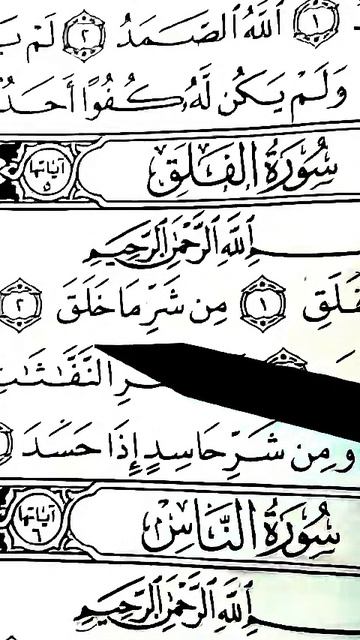 ١ ٱللَّهُ ٱلصَّمَدُ ٢ لَمْ
وَلَمْ يَكُن لَّهُۥ كُفُوًا أَحَدٌ
سُورَةُ الفَلَقِ آياتها ٥
ٱللَّهِ ٱلرَّحْمَٰنِ ٱلرَّحِيمِ
١ مِن شَرِّ مَا خَلَقَ ٢
ٱلنَّفَّٰثَٰتِ
وَمِن شَرِّ حَاسِدٍ إِذَا حَسَدَ
سُورَةُ النَّاسِ آياتها ٦
ٱللَّهِ ٱلرَّحْمَٰنِ ٱلرَّحِيمِ